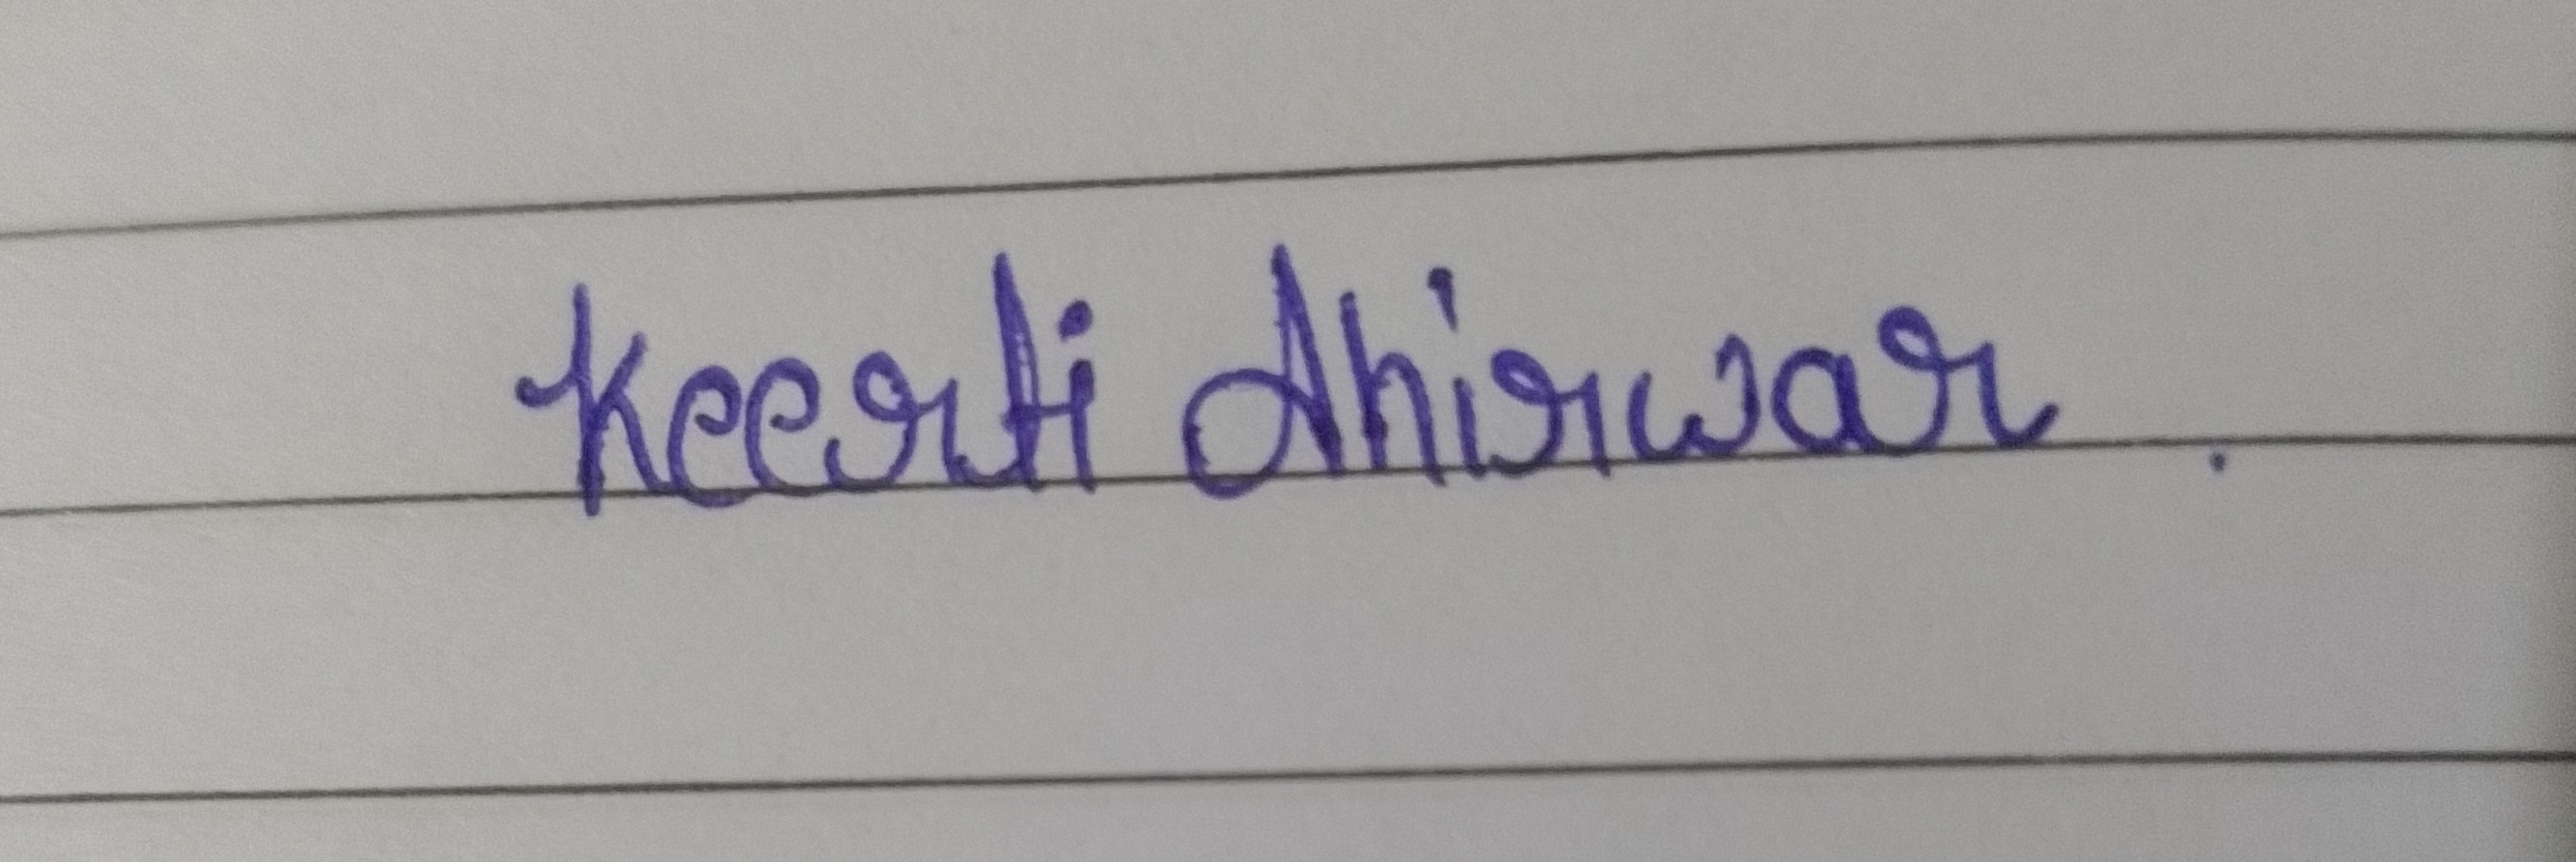 Keerti Ahirwar